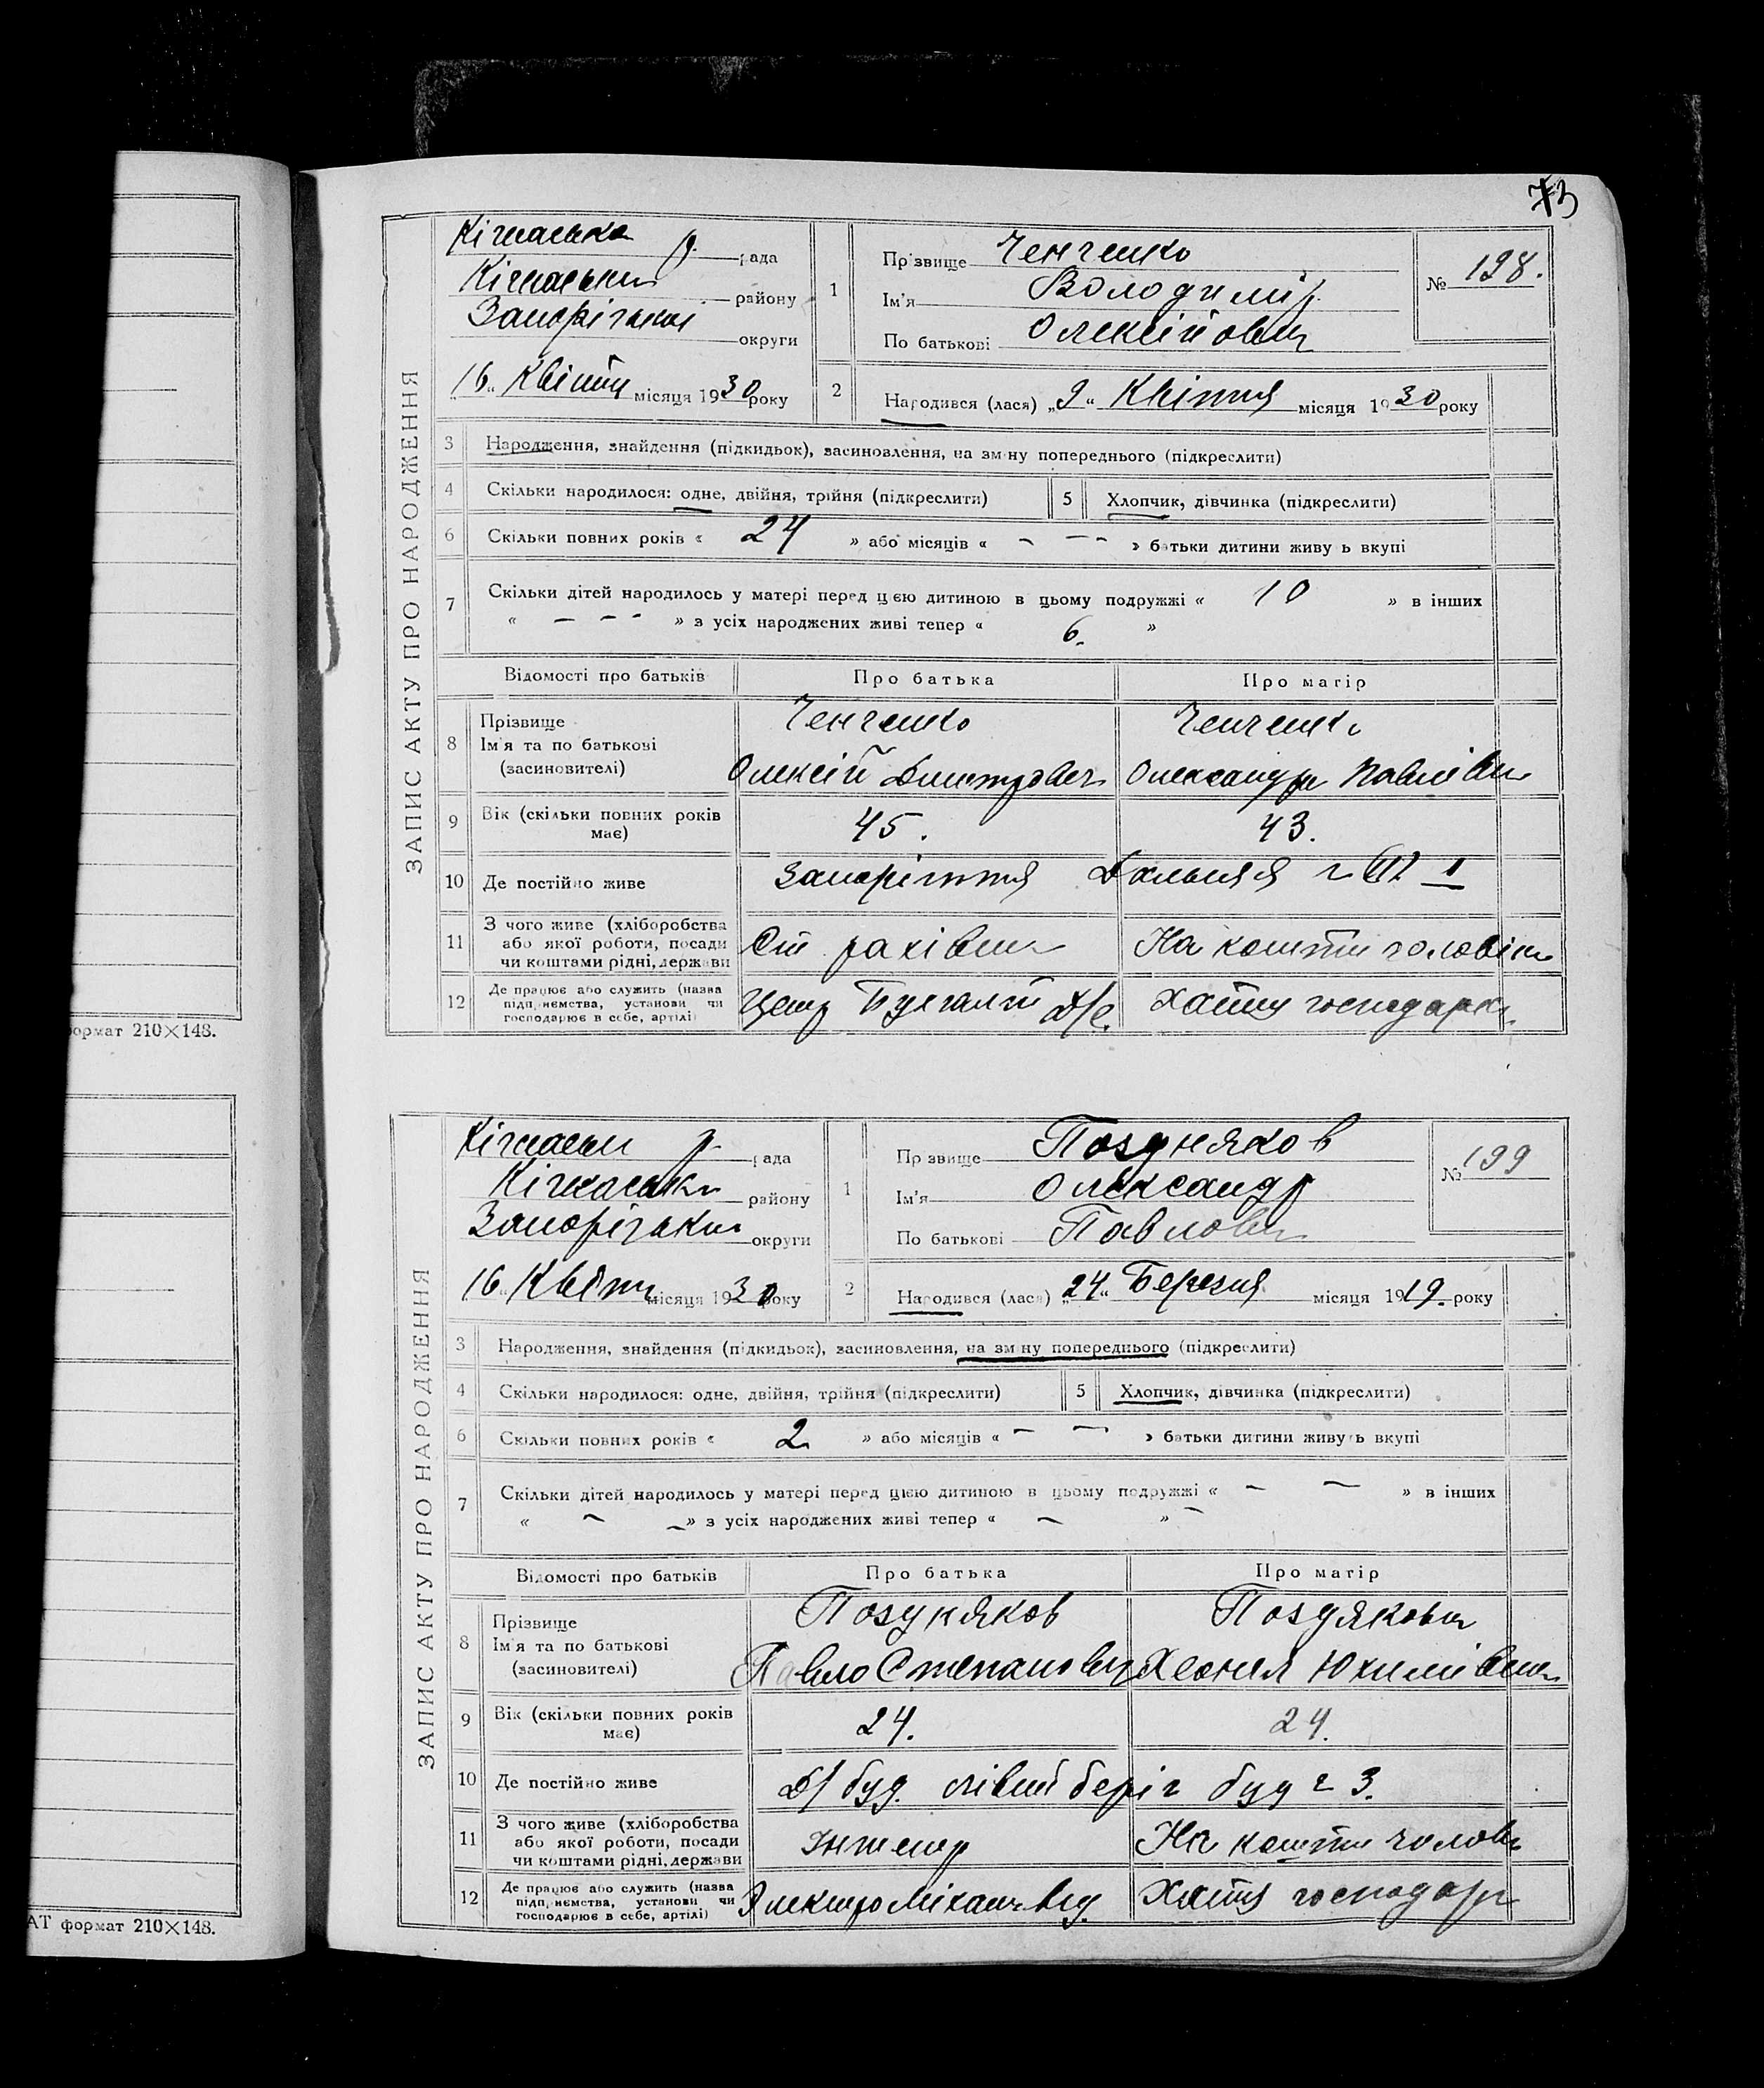 73
ЗАПИС АКТУ ПРО НАРОДЖЕННЯ
Кічкаська р. рада
Кічкаськи району
Запоріжкої округи
„16“ Квітн місяця 1930 року
1 Прізвище Ченченко
Ім'я Володимир
По батькові Олексійович
№ 198.
2 Народився (лася) „9“ Квітня місяця 1930 року
3 Народження, знайдення (підкидьок), засиновлення, на зміну попереднього (підкреслити)
4 Скільки народилося: одне, двійня, трійня (підкреслити) 5 Хлопчик, дівчинка (підкреслити)
6 Скільки повних років « 24 » або місяців « — — » батьки дитини живуть вкупі
7 Скільки дітей народилось у матері перед цією дитиною в цьому подружжі « 10 » в інших
« — — - » з усіх народжених живі тепер « 6. »
Відомості про батьків Про батька Про матір
8 Прізвище Ченченко Ченченко
Ім'я та по батькові Олексій Дмитрович Олександра Павлівна
(засиновителі)
9 Вік (скільки повних років має) 45. 43.
10 Де постійно живе Запоріжжя
11 З чого живе (хліборобства або якої роботи, посади чи коштами рідні, держави Ст рахівник На кошти чоловіка
12 Де працює або служить (назва підприємства, установи чи господарює в себе, артілі) Центр Бухгалт Д/б. Хатня господарка
ормат 210×148.
ЗАПИС АКТУ ПРО НАРОДЖЕННЯ
Кічкаськ р. рада
Кічкаськи району
Запоріжкої округи
16 Квітн місяця 1930 року
1 Прізвище Поздняков
Ім'я Олександр
По батькові Павлович
№ 199
2 Народився (лася) „24“ Березня місяця 1919. року
3 Народження, знайдення (підкидьок), засиновлення, на зміну попереднього (підкреслити)
4 Скільки народилося: одне, двійня, трійня (підкреслити) 5 Хлопчик, дівчинка (підкреслити)
6 Скільки повних років « 2 » або місяців « — — » батьки дитини живуть вкупі
7 Скільки дітей народилось у матері перед цією дитиною в цьому подружжі « — — » в інших
« — — » з усіх народжених живі тепер « — » —
Відомості про батьків Про батька Про матір
8 Прізвище Поздняков Поздякова
Ім'я та по батькові Павло Степанович Юхимівна
(засиновителі)
9 Вік (скільки повних років має) 24. 24.
10 Де постійно живе Д/буд. лівий беріг буд ч 3.
11 З чого живе (хліборобства або якої роботи, посади чи коштами рідні, держави Інженер На кошти чолов
12 Де працює або служить (назва підприємства, установи чи господарює в себе, артілі) Електро Механ. від. Хатня господар
АТ формат 210×148.